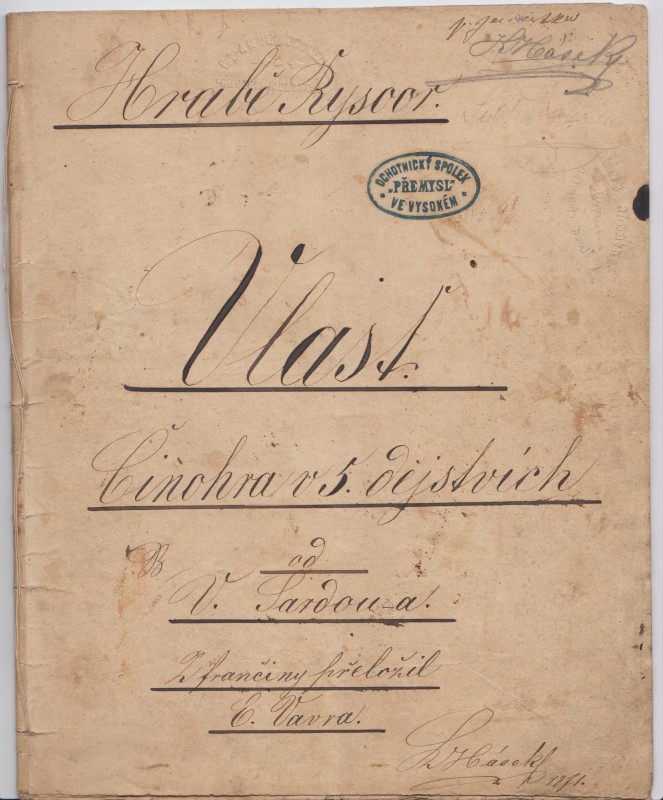 Hašek
Hrabě Rysoor.
OCHOTNICKÝ SPOLEK
"PŘEMYSL"
VE VYSOKÉM
Vlast.
Činohra v 5. dějstvích
od
V. Sardou-a.
Z frančiny přeložil
E. Vávra.
Hásek
1871.